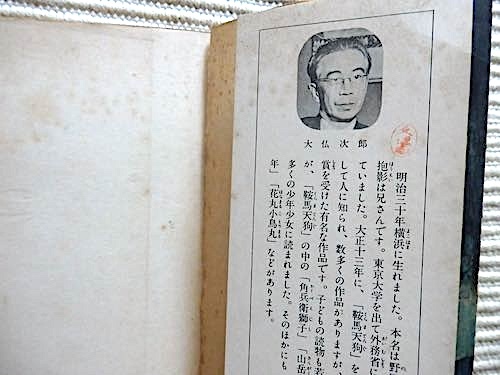 大仏次郎
明治三十年横浜に生れました。本名は野
抱影は兄さんです。東京大学を出て外務省に
ていました。大正十三年に、「鞍馬天狗」を
して人に知られ、数多くの作品がありますが、
賞を受けた有名な作品です。子どもの読物も若
が、「鞍馬天狗」の中の「角兵衛獅子」「山岳
多くの少年少女に読まれました。そのほかにも
年」「花丸小鳥丸」などがあります。